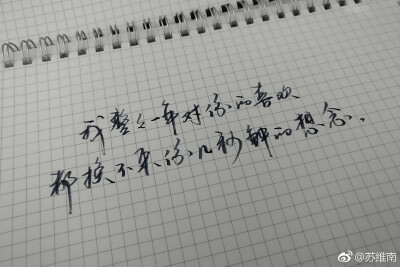 我整々一年对你的喜欢
都换不来你几秒钟的想念.
@苏维南